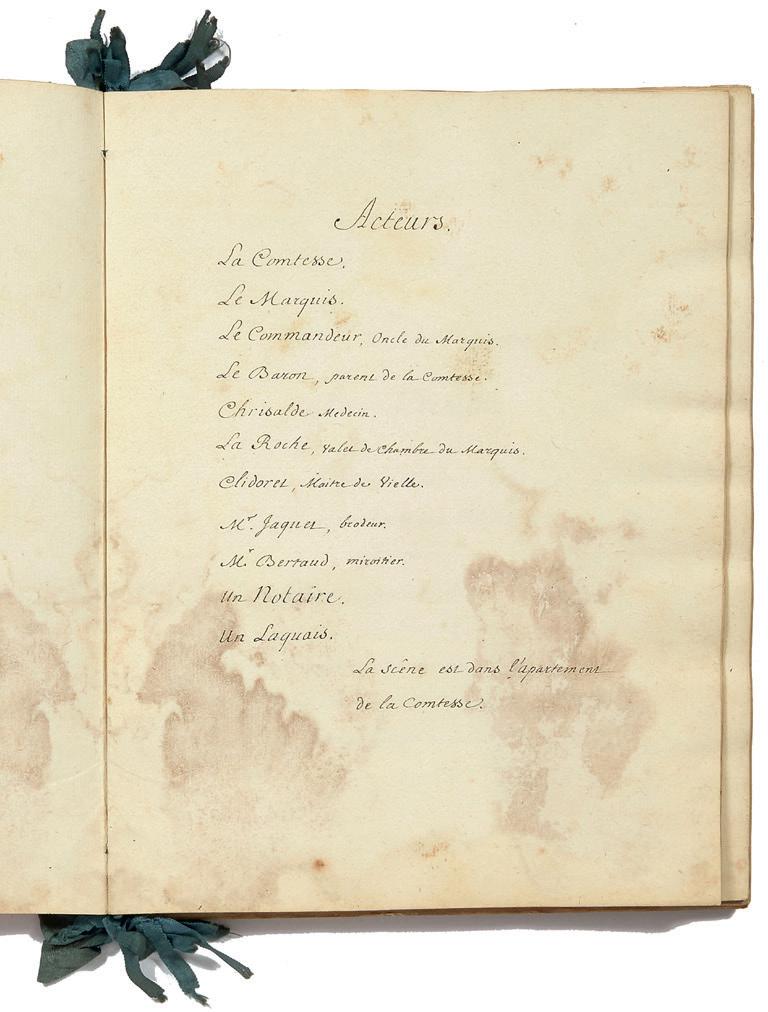 Acteurs.
La Comtesse.
Le Marquis.
Le Commandeur, Oncle du Marquis.
Le Baron, parent de la Comtesse.
Chrisalde Medecin.
La Roche, Valet de Chambre du Marquis.
Clidoret, Maitre de Vielle.
Mr. Jaquet, brodeur.
Mr. Bertaud, miroitier.
Un Notaire.
Un Laquais.
La scêne est dans l'apartement
de la Comtesse.